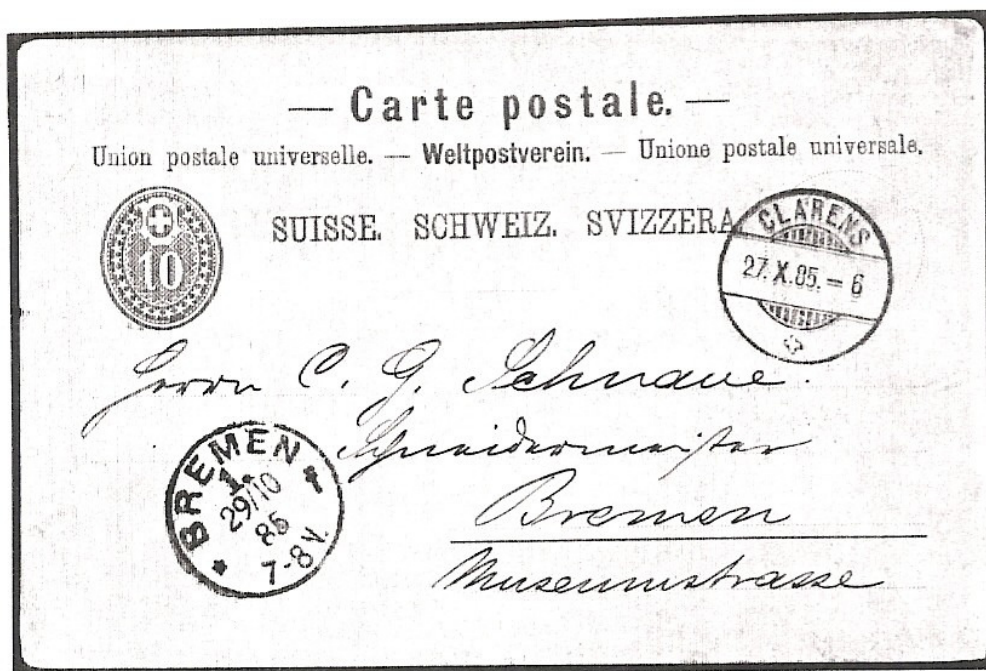 — Carte postale. —
Union postale universelle. — Weltpostverein. — Unione postale universale.
10
SUISSE. SCHWEIZ. SVIZZERA
CLARENS
27.X.85.–6
Herrn C. G. Schnaue.
Schneidermeister
Bremen
Museumstrasse
BREMEN
1.
29/10
85
7-8V.